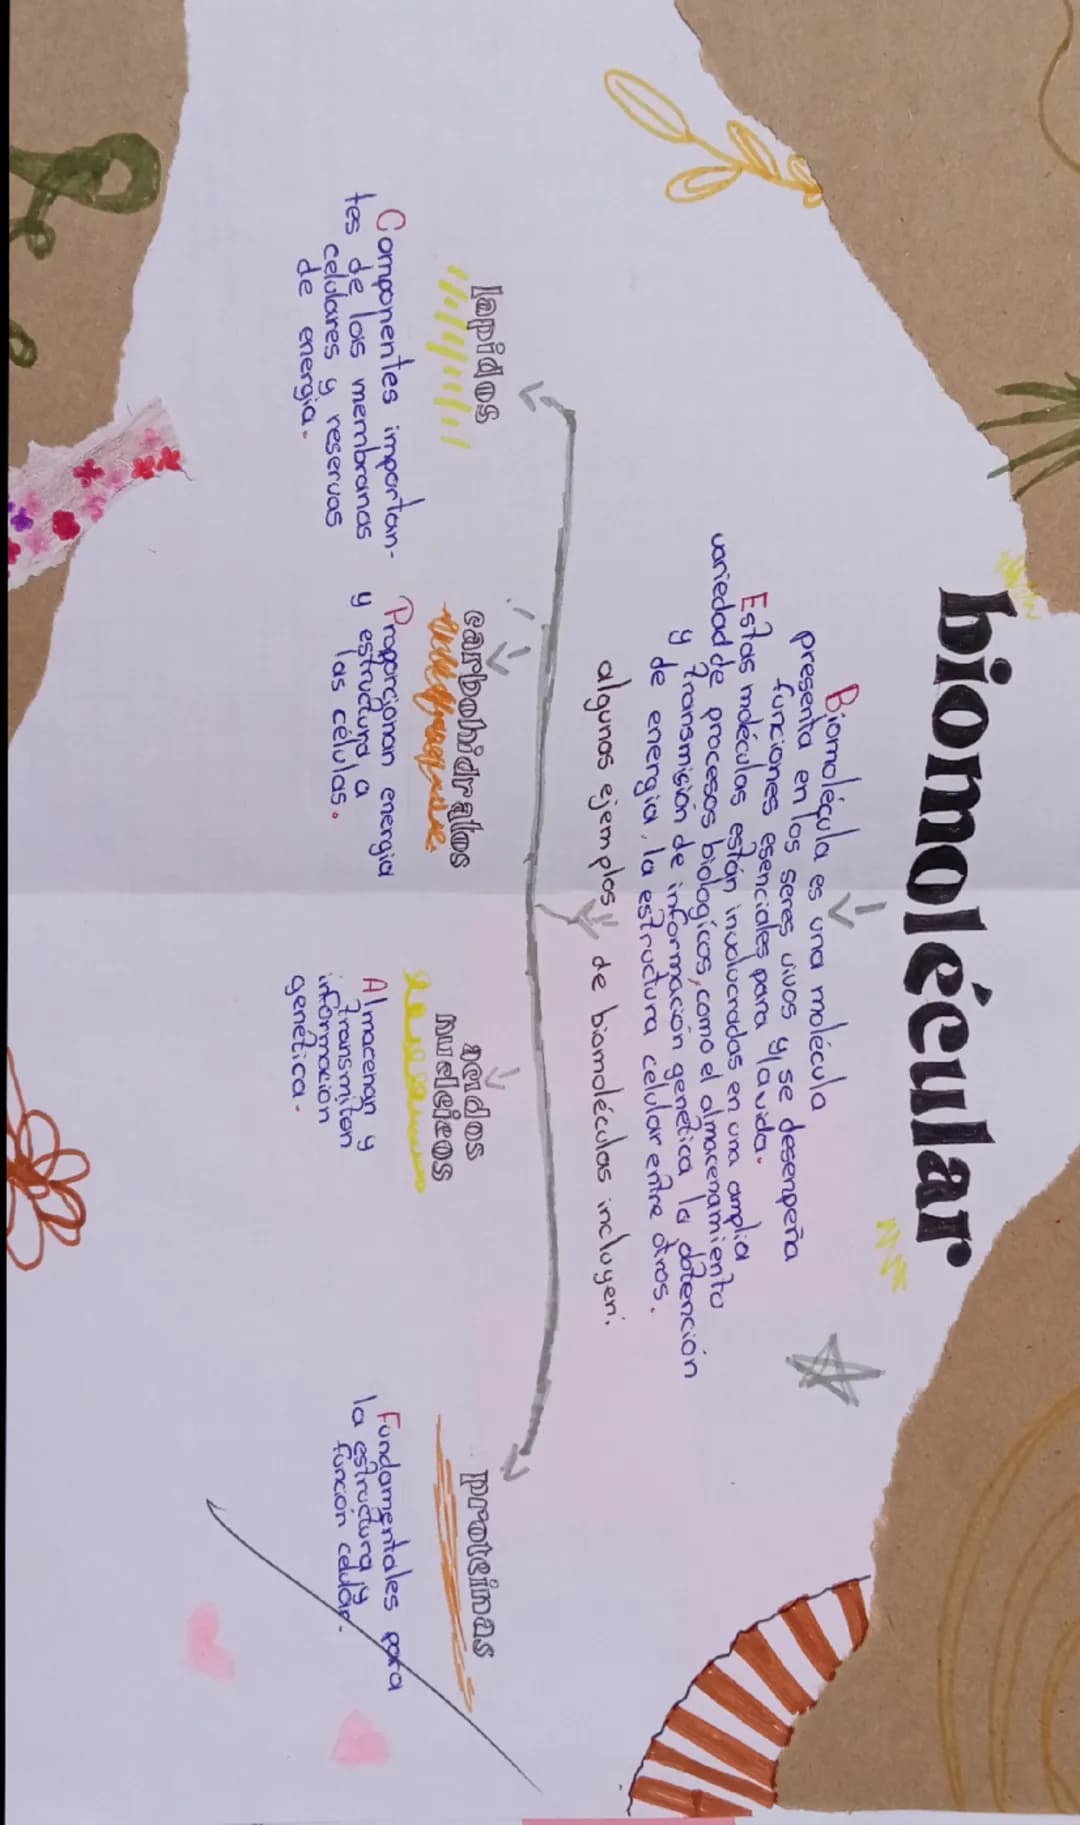 biomolécular
Biomolécula es una molécula
presenta en los seres vivos y se desenpeña
funciones esenciales para la vida.
Estas moléculas están involucradas en una amplia
variedad de procesos biologicos, como el almacenamiento
y transmisión de información genética la obtención
de energia, la estructura celular entre otros.
algunos ejemplos de biomoléculas incluyen:
lapidos
Componentes importan-
tes de las membranas
celulares y reservas
de energia.
carbohidratos
Proporcionan energia
y estructura a
las células.
acidos
nucleicos
Almacenan y
transmiten
información
genetica.
proteinas
Fundamentales para
la estructura y
función celular.